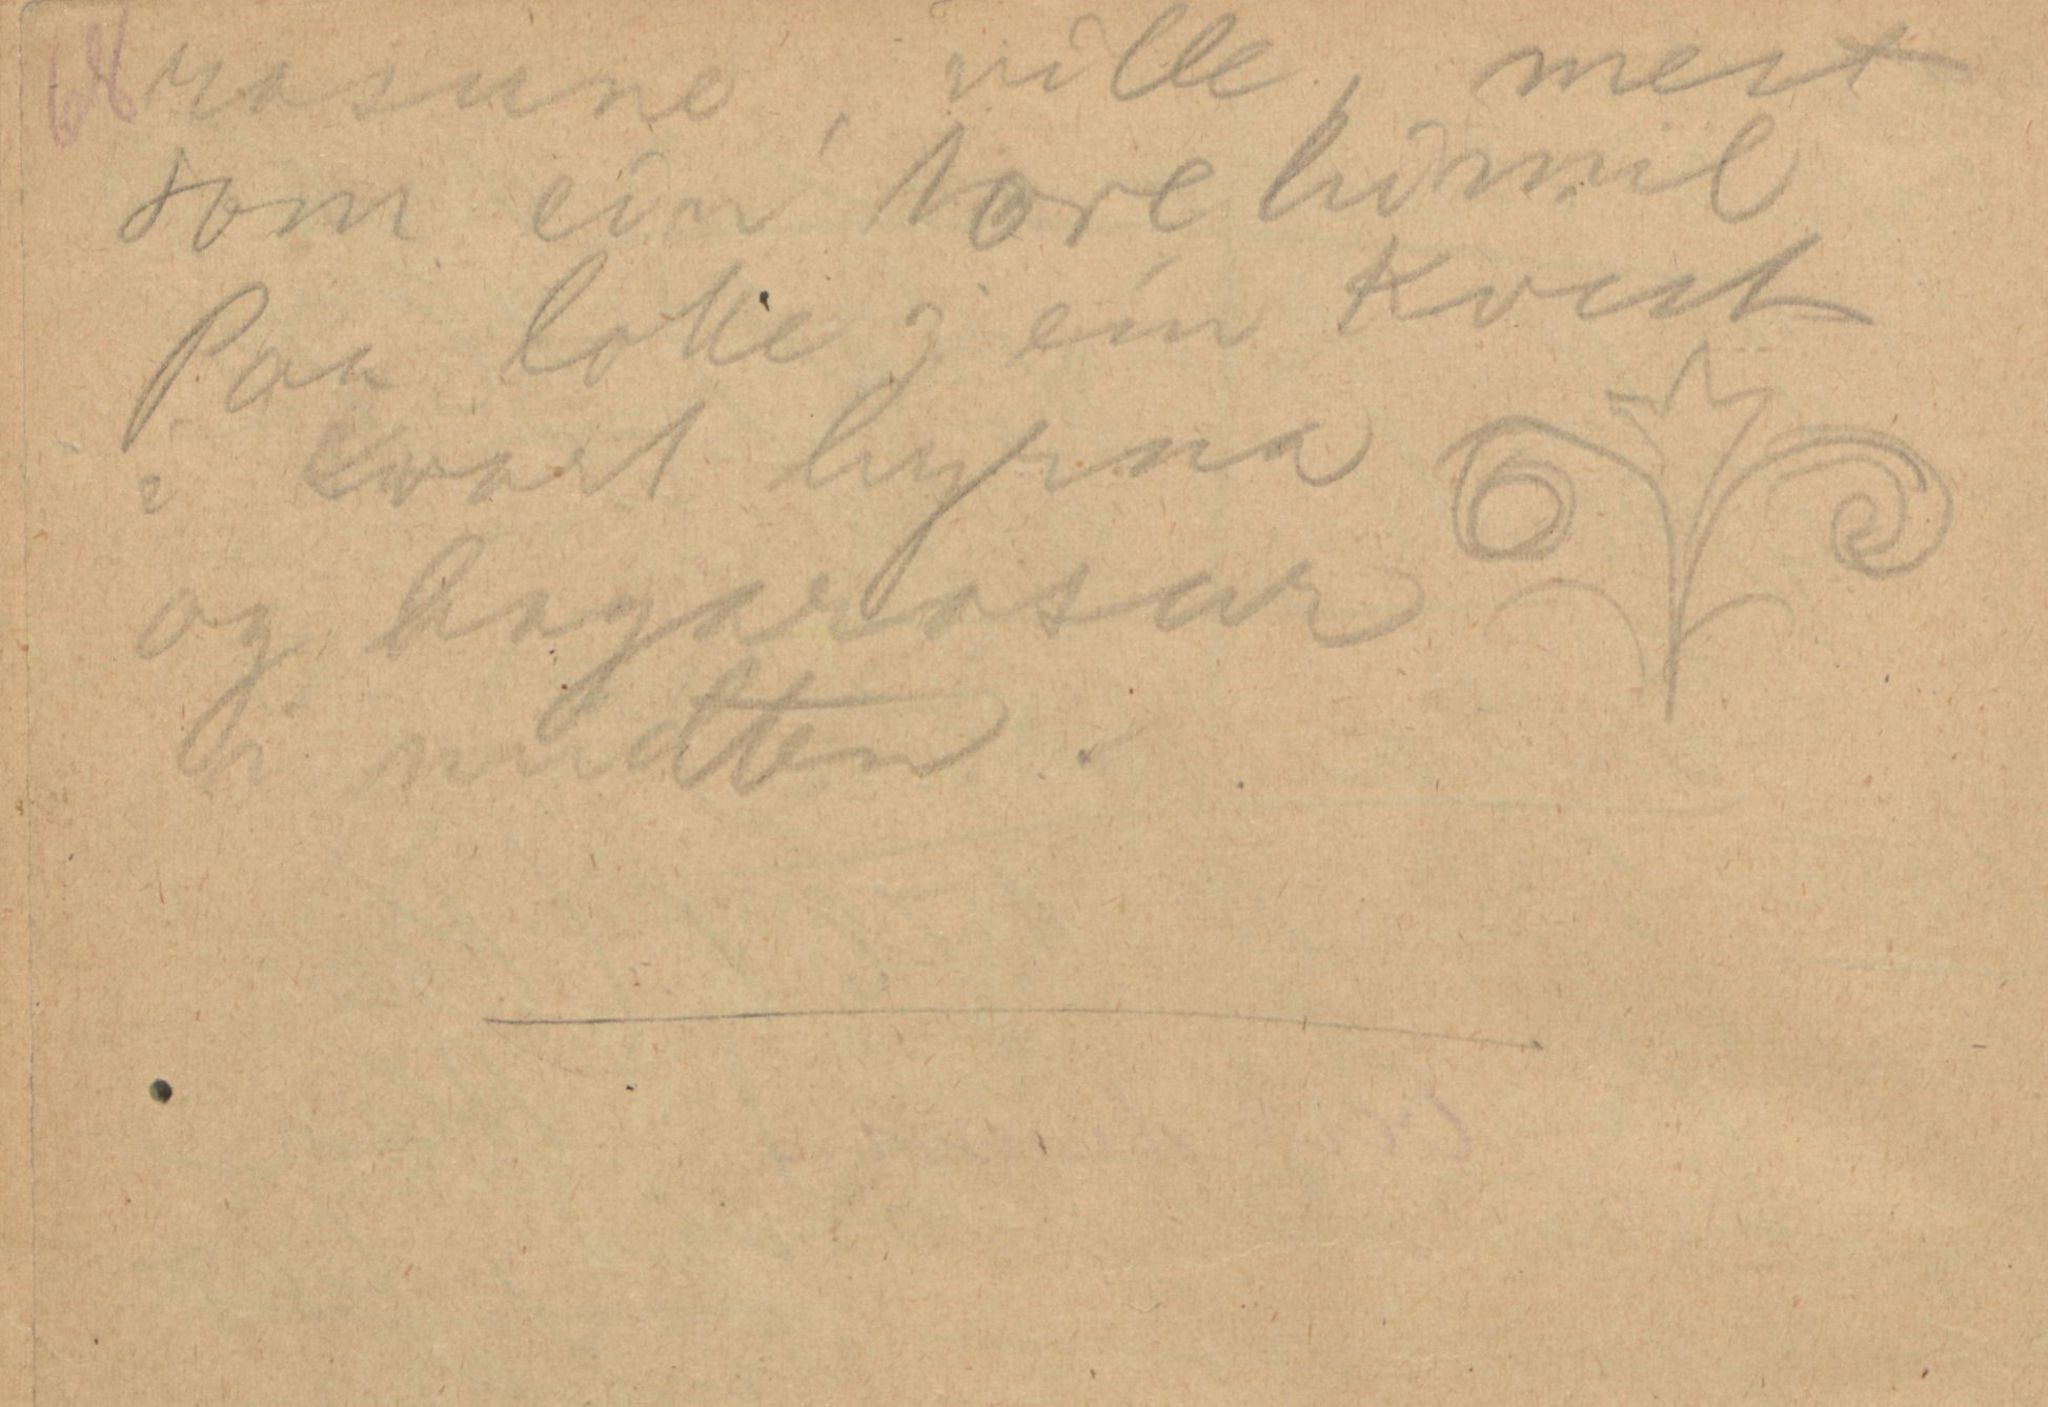 68
rosune, ville, mest
som ein torehimil
Paa loke, ein Kvist
i kvart hyrna
og hagarosur
i midten.